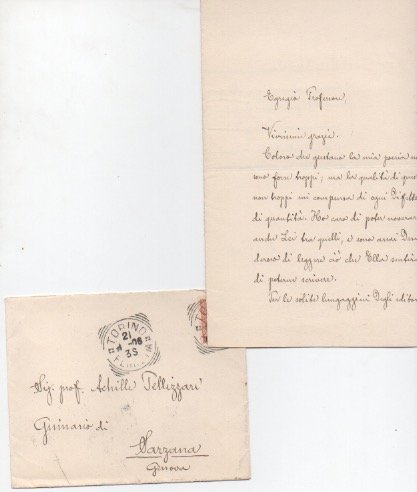 Egregio Professore,
Vivissime grazie.
Coloro che gustano la mia poesia
sono forse troppi; ma la qualità di
non troppi mi compensa di ogni difetto
di quantità. Ho caro di poter
anche Lei tra quelli, e sono assai
deroso di leggere ciò che Ella
di poterne scrivere.
Per le solite lungaggini degli
TORINO
21
3S
TORINO
Sig. prof. Achille Pellizzari
Ginnasio di
Sarzana
Genova